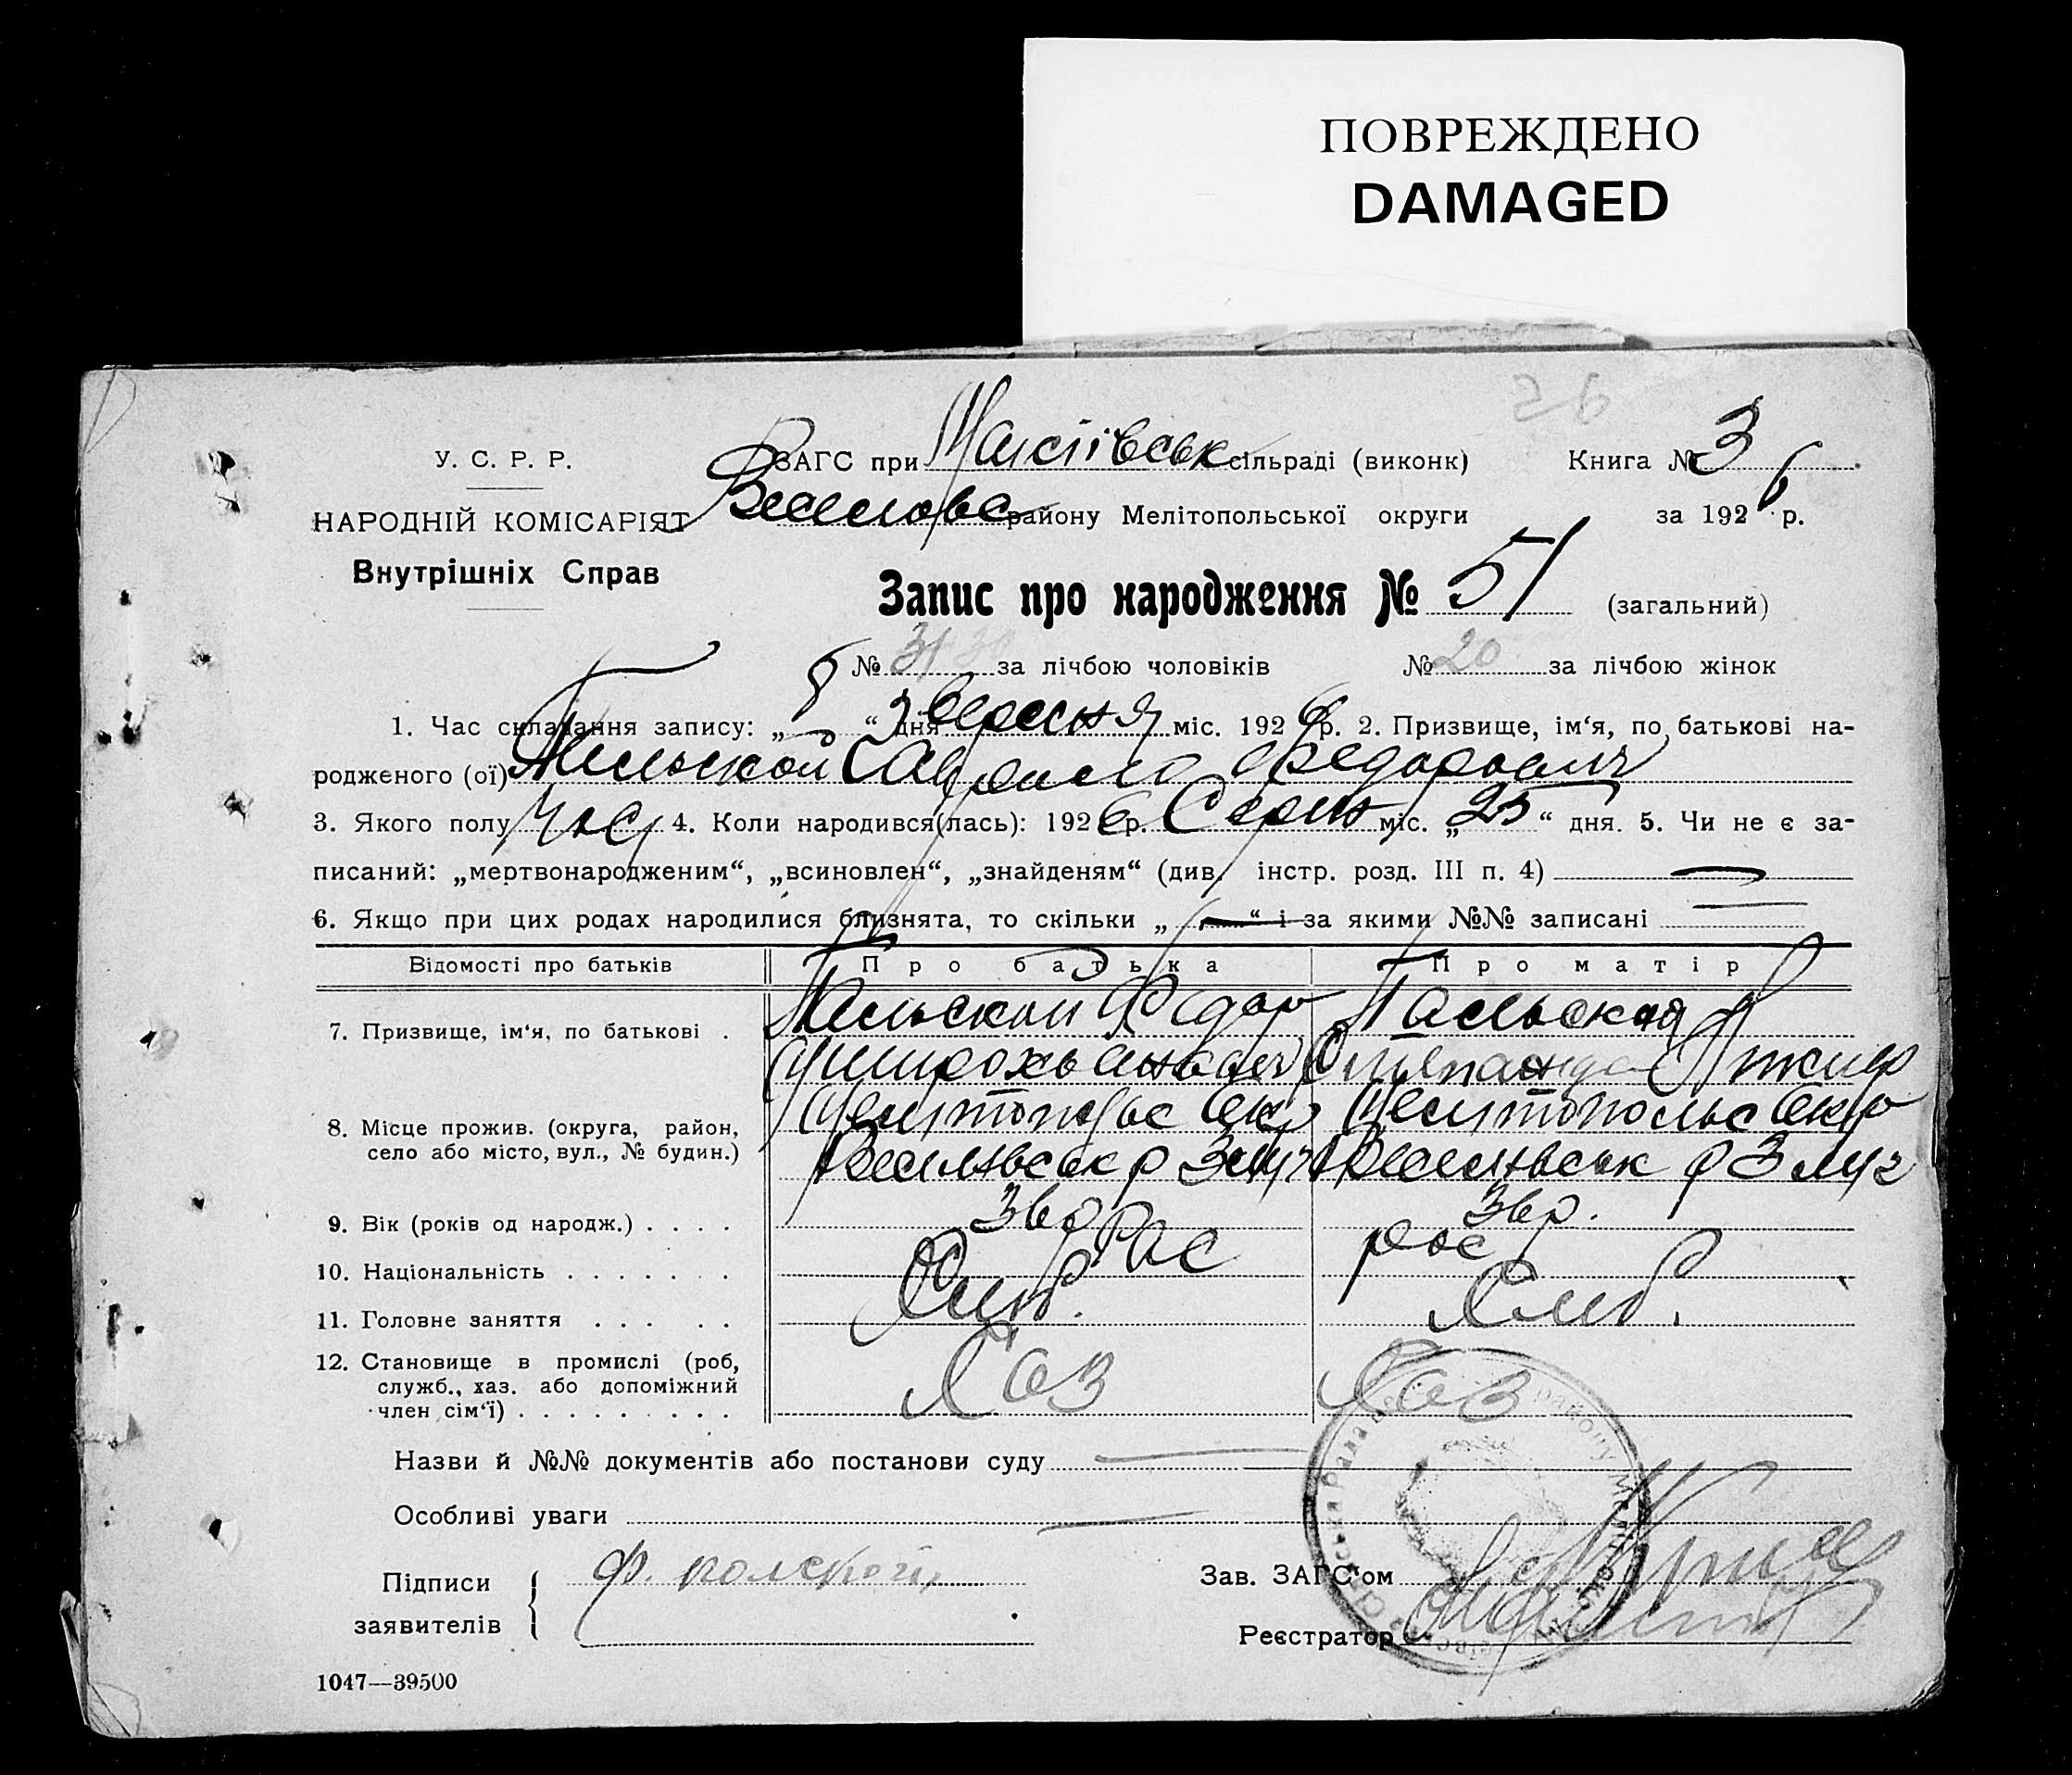 ПОВРЕЖДЕНО
DAMAGED
26
У. С. Р. Р.
ЗАГС при сільраді (виконк) Книга № 3
НАРОДНІЙ КОМІСАРІЯТ району Мелітопольської округи за 1926 р.
Внутрішніх Справ
Запис про народження № 51 (загальний)
№ 31 за лічбою чоловіків № 20 за лічбою жінок
1. Час складання запису: „ “ дня вересня міс. 1926 р. 2. Призвище, ім‘я, по батькові на-
родженого (ої) Федорович
3. Якого полу 4. Коли народився(лась): 1926 р. Серпн міс. „25“ дня. 5. Чи не є за-
писаний: „мертвонародженим“, „всиновлен“, „знайденям“ (див. інстр. розд. III п. 4) —
6. Якщо при цих родах народилися близнята, то скільки „—“ і за якими №№ записані —
Відомості про батьків Про батька Про матір
7. Призвище, ім‘я, по батькові . Польской Федор Польская
8. Місце прожив. (округа, район, Мелитопольс окр Мелитопольс окр
село або місто, вул., № будин.) Веселівськ р Веселівськ р
9. Вік (років од народж.) . . . . 36 р 36 р.
10. Національність . . . . . . . Рос рос
11. Головне заняття . . . . . Хліб. Хліб.
12. Становище в промислі (роб, Хаз Хаз
служб., хаз. або допоміжний
член сім‘ї) . . . . . . . . .
Назви й №№ документів або постанови суду —
Особливі уваги —
Підписи Ф. полской Зав. ЗАГС‘ом
заявителів Реєстратор
1047—39500